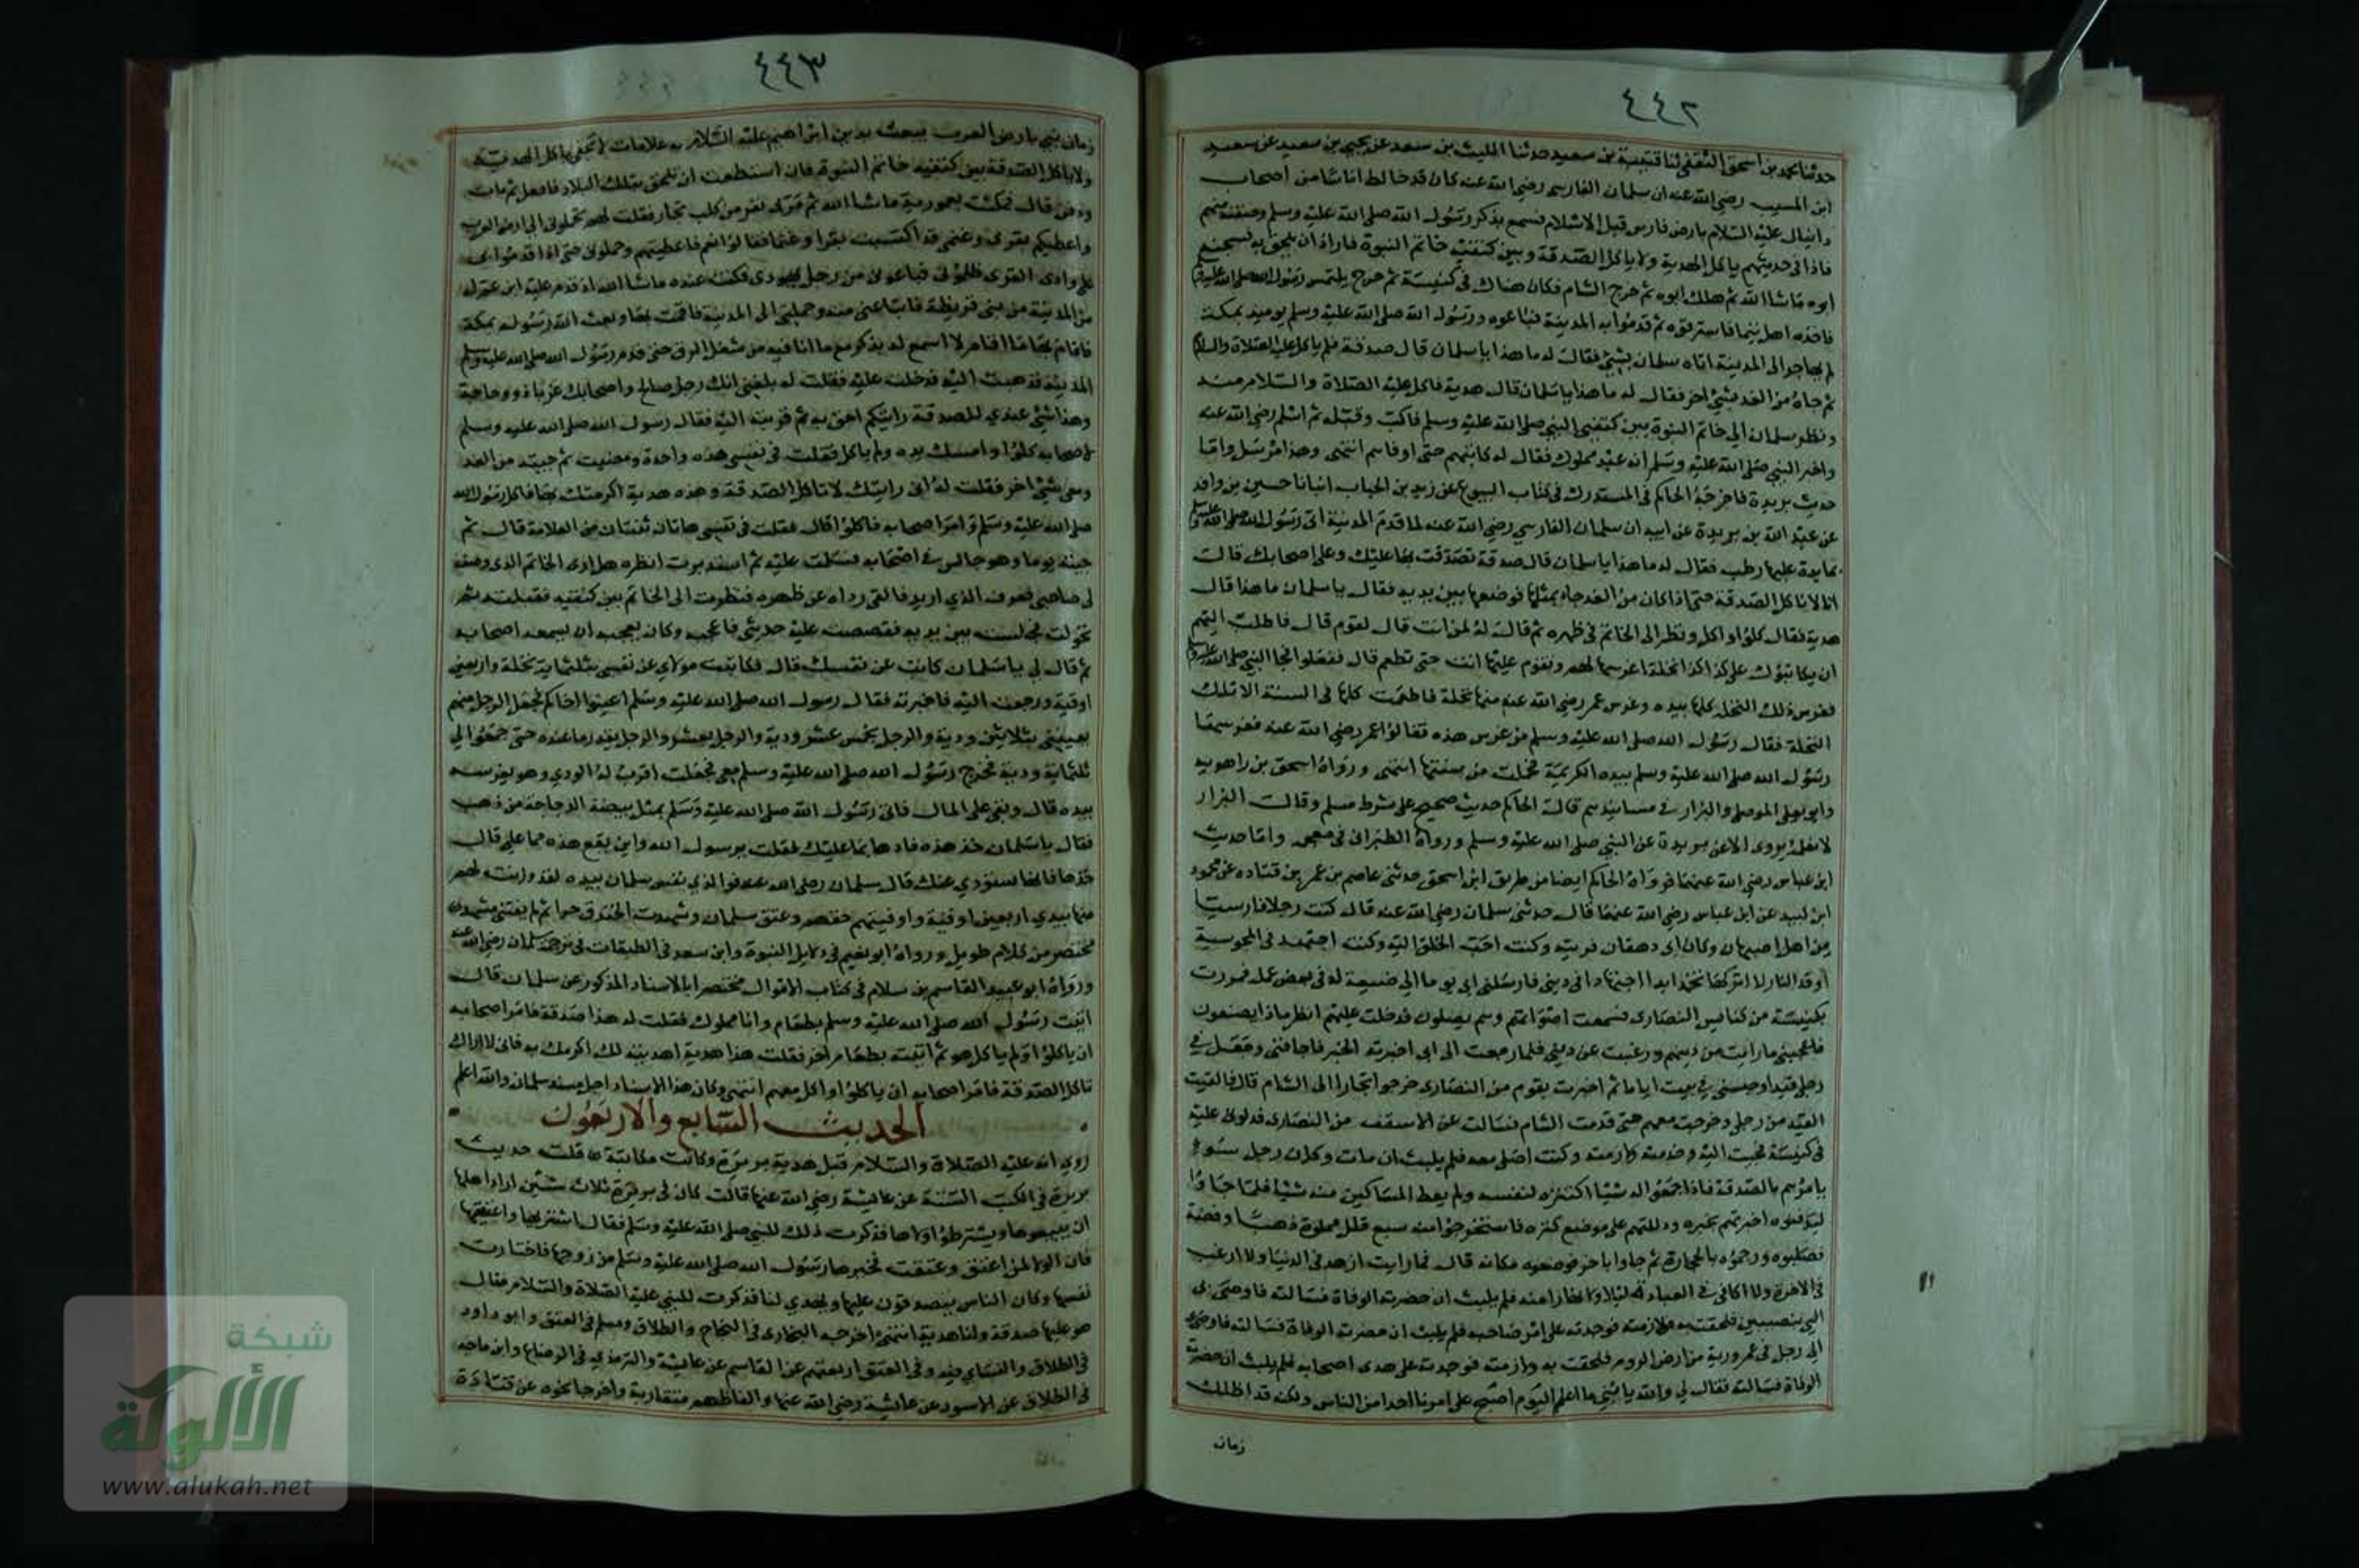 ٤٤٢
حدثنا محمد بن اسحق الثقفي ثنا قتيبة بن سعيد حدثنا الليث بن سعد عن يحيى بن سعيد عن سعيد
ابن المسيب رضي الله عنه ان سلمان الفارسي رضي الله عنه كان قد خالط اناسا من اصحاب
دانيال عليه السلام بارض فارس قبل الاسلام فسمع بذكر رسول الله صلى الله عليه وسلم وصفته منهم
فاذا في حديثهم ياكل الهدية ولا ياكل الصدقة وبين كتفيه خاتم النبوة فاراد ان يلحق به فسجنه
ابوه ماشا الله ثم هلك ابوه ثم خرج الى الشام فكان هناك في كنيسة ثم خرج يلتمس رسول الله صلى الله عليه
فاخذه اهل تيما فاسترقوه ثم قدموا به المدينة فباعوه ورسول الله صلى الله عليه وسلم يوميذ بمكة
لم يهاجر الى المدينة اتاه سلمان بشيء فقال له ما هذا يا سلمان قال صدقة فلم ياكل عليه الصلاة والسلام
ثم جاه من الغد بشيء اخر فقال له ما هذا يا سلمان قال هدية فاكل عليه الصلاة والسلام منه
ونظر سلمان الى خاتم النبوة بين كتفي النبي صلى الله عليه وسلم فاكب وقبله ثم اسلم رضي الله عنه
واخبر النبي صلى الله عليه وسلم انه عبد مملوك فقال له كاتبهم حتى اوفاهم انتهى وهذا مرسل واما
حديث بريدة فاخرجه الحاكم في المستدرك في كتاب البيوع عن زيد بن الحباب انبانا حسين بن واقد
عن عبد الله بن بريدة عن ابيه ان سلمان الفارسي رضي الله عنه لما قدم المدينة اتى رسول الله صلى الله عليه وسلم
بمايدة عليها رطب فقال له ما هذا يا سلمان قال صدقة تصدقت بها عليك وعلى اصحابك قال
انا لا ناكل الصدقة حتى اذا كان من الغد جاه بمثلها فوضعها بين يديه فقال يا سلمان ما هذا قال
هدية فقال كلوا واكل ونظر الى الخاتم في ظهره ثم قال له لمن انت قال لقوم قال فاطلب اليهم
ان يكاتبوك على كذا كذا نخلة اغرسها لهم وتقوم عليها انت حتى تطعم قال ففعلوا فجا النبي صلى الله عليه وسلم
فغرس ذلك النخل كلها بيده وغرس عمر رضي الله عنه منها نخلة فاطعمت كلها في السنة الا تلك
النخلة فقال رسول الله صلى الله عليه وسلم من غرس هذه فقالوا عمر رضي الله عنه فغرسها
رسول الله صلى الله عليه وسلم بيده الكريمة فحملت من سنتها انتهى ورواه اسحق بن راهويه
وابو يعلى الموصلي والبزار في مسانيدهم قال الحاكم حديث صحيح على شرط مسلم وقال البزار
لا نعلمه يروى الا عن بريدة عن النبي صلى الله عليه وسلم ورواه الطبراني في معجمه واما حديث
ابن عباس رضي الله عنهما فرواه الحاكم ايضا من طريق ابن اسحق حدثني عاصم بن عمر بن قتاده عن محمود
ابن لبيد عن ابن عباس رضي الله عنهما قال حدثني سلمان رضي الله عنه قال كنت رجلا فارسيا
من اهل اصبهان وكان ابي دهقان قريته وكنت احب الخلق اليه وكنت اجتهد في المجوسية
اوقد النار لا اتركها تخمد ابدا اجتهادا في ديني فارسلني ابي يوما الى ضيعة له في بعض عمله فمررت
بكنيسة من كنايس النصارى فسمعت اصواتهم وهم يصلون فدخلت عليهم انظر ماذا يصنعون
فاعجبني ما رايت من دينهم ورغبت عن ديني فلما رجعت الى ابي اخبرته الخبر فاخافني وجعل في
رجلي قيدا وحبسني في بيت اياما ثم اخبرت بقوم من النصارى خرجوا تجارا الى الشام قال فالقيت
القيد من رجلي وخرجت معهم حتى قدمت الشام فسالت عن الاسقف من النصارى فدلوني عليه
في كنيسة فجيت اليه وخدمته ولازمته وكنت اصلي معه فلم يلبث ان مات وكان رجل سوء
يامرهم بالصدقة فاذا جمعوا له شيئا اكتنزه لنفسه ولم يعط المساكين منه شيئا فلما جاوا
ليدفنوه اخبرتهم بخبره ودللتهم على موضع كنزه فاستخرجوا منه سبع قلل مملوة ذهبا وفضة
فصلبوه ورجموه بالحجارة ثم جاوا باخر فوضعوه مكانه قال فما رايت ازهد في الدنيا ولا ارغب
في الاخرة ولا اكافى في العبادة ليلا ونهارا منه فلم يلبث ان حضرته الوفاة فسالته فاوصى بي
الى نصيبين فلحقت به ولازمته فوجدته على اثر صاحبه فلم يلبث ان حضرته الوفاة فسالته فاوصى بي
الى رجل في عمورية من ارض الروم فلحقت به ولازمته فوجدته على هدى اصحابه فلم يلبث ان حضرته
الوفاة فسالته فقال لي والله يا بني ما اعلم اليوم اصبح على امرنا احدا من الناس ولكنه قد اظلك
زمان
٤٤٣
زمان نبي بارض العرب يبعث بدين ابراهيم عليه السلام به علامات لا تخفى ياكل الهدية
ولا ياكل الصدقة بين كتفيه خاتم النبوة فان استطعت ان تلحق بتلك البلاد فافعل ثم مات
ودفن قال فمكثت بعمورية ماشا الله ثم مر بي نفر من كلب تجار فقلت لهم تحملوني الى ارض العرب
واعطيكم بقري وغنمي قد اكتسبت بقرا وغنما فقالوا نعم فاعطيتهم وحملوني حتى اذا قدموا بي
على وادي القرى ظلموني فباعوني من رجل يهودي فكنت عنده ماشا الله اذ قدم عليه ابن عم له
من المدينة من بني قريظة فابتاعني منه وحملني الى المدينة فاقمت بها وبعث الله رسوله بمكة
فاقام بها ما اقام لا اسمع له بذكر مع ما انا فيه من شغل الرق حتى قدم رسول الله صلى الله عليه وسلم
المدينة فذهبت اليه فدخلت عليه فقلت له بلغني انك رجل صالح واصحابك غرباء ذوو حاجة
وهذا شيء عندي للصدقة رايتكم احق به ثم قربته اليه فقال رسول الله صلى الله عليه وسلم
لاصحابه كلوا وامسك يده ولم ياكل فقلت في نفسي هذه واحدة ومضيت ثم جيته من الغد
ومعي شيء اخر فقلت له اني رايتك لا تاكل الصدقة وهذه هدية اكرمتك بها فاكل رسول الله
صلى الله عليه وسلم وامر اصحابه فاكلوا قال فقلت في نفسي هاتان ثنتان من العلامة قال ثم
جيته يوما وهو جالس في اصحابه فسلمت عليه ثم استدبرت انظره هل ارى الخاتم الذي وصفه
لي صاحبي فعرف الذي اريد فالقى رداه عن ظهره فنظرت الى الخاتم بين كتفيه فقبلته ثم
تحولت فجلست بين يديه فقصصت عليه حديثي فاعجبه وكان يعجبه ان يسمعه اصحابه
ثم قال لي يا سلمان كاتب عن نفسك قال فكاتبت مولاي عن نفسي بثلثماية نخلة واربعين
اوقية ورجعت اليه فاخبرته فقال رسول الله صلى الله عليه وسلم اعينوا اخاكم فجعل الرجل منهم
يعينني بثلاثين ودية والرجل بخمس عشر ودية والرجل بعشر والرجل بقدر ما عنده حتى جمعوا لي
ثلثماية ودية فخرج رسول الله صلى الله عليه وسلم معي فجعلت اقرب له الودي وهو يغرسه
بيده قال وبقي على المال فاتى رسول الله صلى الله عليه وسلم بمثل بيضة الدجاجة من ذهب
فقال يا سلمان خذ هذه فادها بما عليك فقلت يرسول الله واين يقع هذه مما علي قال
خذها فانها ستؤدي عنك قال سلمان رضي الله عنه فوالذي نفس سلمان بيده لقد وزنت لهم
منها بيدي اربعين اوقية واوفيتهم حقهم وعتق سلمان وشهدت الخندق حرا ثم لم يفتني مشهد
مختصر من كلام طويل ورواه ابو نعيم في دلايل النبوة وابن سعد في الطبقات في ترجمة سلمان رضي الله عنه
ورواه ابو عبيد القاسم بن سلام في كتاب الاموال مختصرا بالاسناد المذكور عن سلمان قال
اتيت رسول الله صلى الله عليه وسلم بطعام وانا مملوك فقلت له هذا صدقة فامر اصحابه
ان ياكلوا ولم ياكل هو ثم اتيته بطعام اخر فقلت هذا هدية اهديته لك اكرمك به فاني لا اراك
تاكل الصدقة فامر اصحابه ان ياكلوا واكل معهم انتهى وكان هذا الاسناد اجل مسند سلمان والله اعلم
الحديث السابع والاربعون
روي انه عليه الصلاة والسلام قبل هدية بريرة وكانت مكاتبة قلت حديث
بريرة في الكتب الستة عن عايشة رضي الله عنها قالت كان في بريرة ثلاث سنين اراد اهلها
ان يبيعوها ويشترطوا ولاها فذكرت ذلك للنبي صلى الله عليه وسلم فقال اشتريها واعتقيها
فان الولا لمن اعتق وعتقت فخيرها رسول الله صلى الله عليه وسلم من زوجها فاختارت
نفسها وكان الناس يتصدقون عليها وتهدي لنا فذكرت للنبي عليه الصلاة والسلام فقال
هو عليها صدقة ولنا هدية انتهى اخرجه البخاري في النكاح والطلاق ومسلم في العتق وابو داود
في الطلاق والنساي فيه وفي العتق اربعتهم عن القاسم عن عايشة والترمذي في الرضاع وابن ماجه
في الطلاق عن الاسود عن عايشة رضي الله عنها والفاظهم متقاربة واخرجا نحوه عن قتادة
شبكة
الألوكة
www.alukah.net